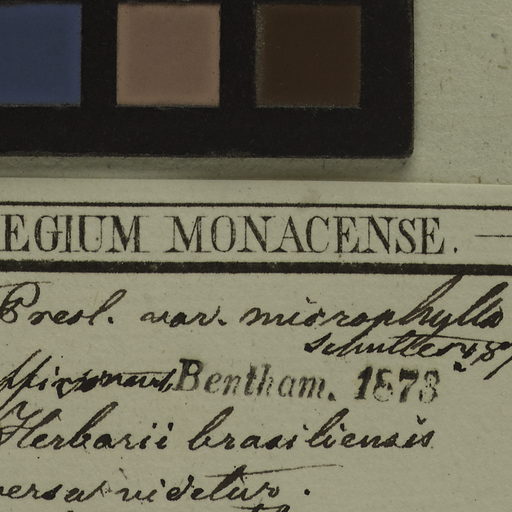 EGIUM MONACENSE.
Presl. var. microphylla
Bentham. 1873
Herbarii brasiliensis
versa videtur.